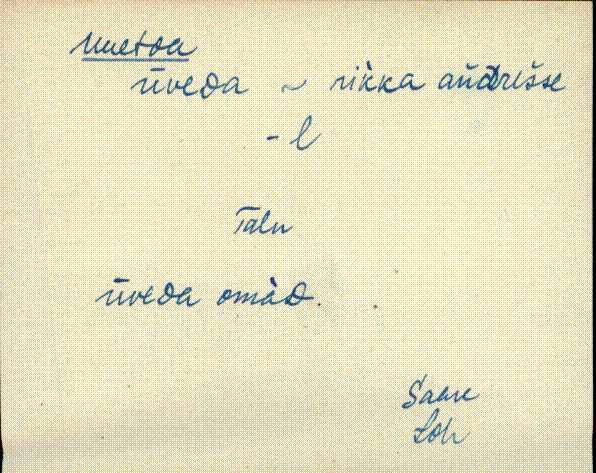 Uuetoa
ūveᴅa ~ rikka añᴅrešse
- l
Talu
ūveᴅa omàᴅ.
Saare
Loh